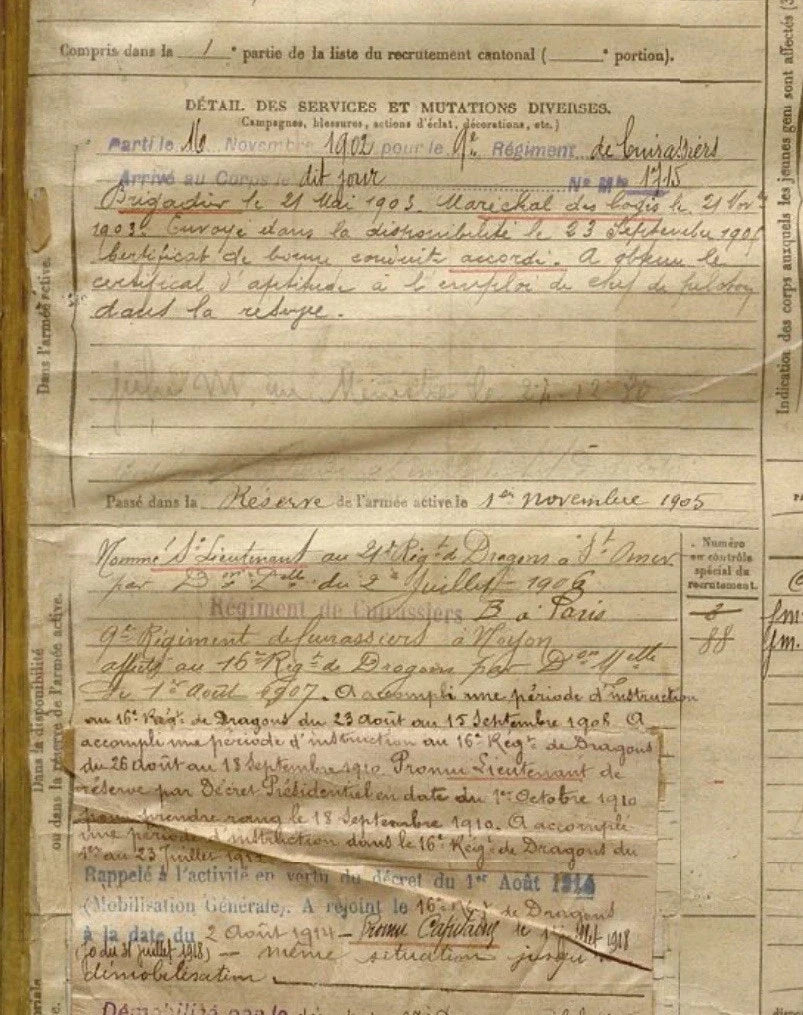 Compris dans la 1e partie de la liste du recrutement cantonal ( e portion).
DÉTAIL DES SERVICES ET MUTATIONS DIVERSES.
(Campagnes, blessures, actions d'éclat, décorations, etc.)
Parti le 16 Novembre 1902 pour le 9e Régiment de Cuirassiers
Arrivé au Corps le dit jour N° Mle 1715
Brigadier le 21 Mai 1903 Maréchal des logis le 21 Nov
1903. Envoyé dans la disponibilité le 23 Septembre 190
Certificat de bonne conduite accordé. A obtenu le
certificat d'aptitude à l'emploi de chef de peloton
dans la réserve.
Passé dans la Réserve de l'armée active le 1er novembre 1905
Nommé S. Lieutenant au 21e Régt de Dragons à St Omer
par Don du 2 Juillet 1906
Régiment de Cuirassiers B à Paris
9e Régiment de Cuirassiers à Noyon
affecté au 16e Régt de Dragons par Don Melle
du 1er Août 1907. A accompli une période d'instruction
au 16e Régt de Dragons du 23 août au 15 Septembre 1908. A
accompli une période d'instruction au 16e Régt de Dragons
du 26 août au 18 Septembre 1910 Promu Lieutenant de
réserve par Décret Présidentiel en date du 1er Octobre 1910
pour prendre rang le 18 Septembre 1910. A accompli
une période d'instruction dans le 16e Régt de Dragons du
1er au 23 Juillet
Rappelé à l'activité en vertu du décret du 1er Août 1914
(Mobilisation Générale). A rejoint le 16e Régt de Dragons
à la date du 2 Août 1914 – Promu Capitaine le 1918
(Jo du 31 juillet 1918) – même situation jusqu'à
démobilisation.
Démobilisé par le
Dans l'armée active.
Dans la disponibilité
ou dans la réserve de l'armée active.
Numéro
au contrôle
spécial du
recrutement.
88
Indication des corps auxquels les jeunes gens sont affectés